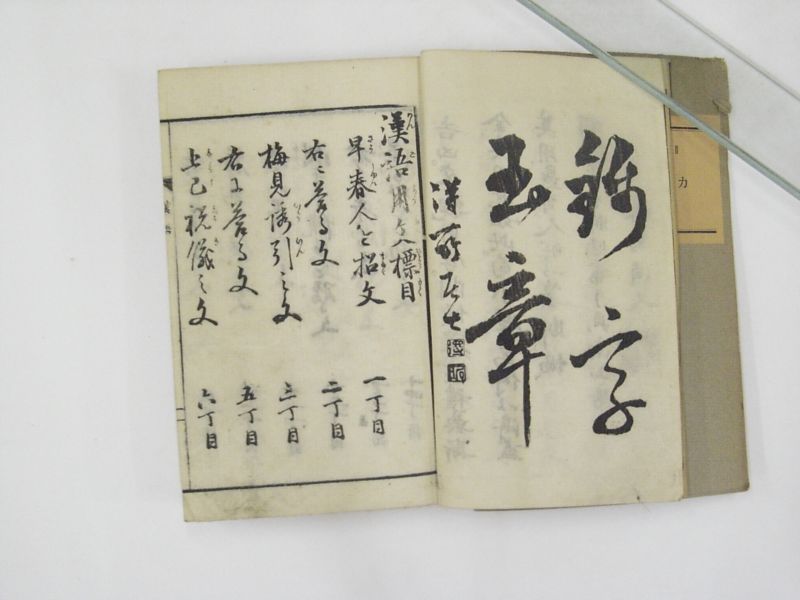 カ
錦字
玉章
居士
漢語用文標目
早春人を招文 一丁目
右に答る文 二丁目
梅見誘引之文 三丁目
右に答る文 五丁目
上巳祝儀之文 六丁目